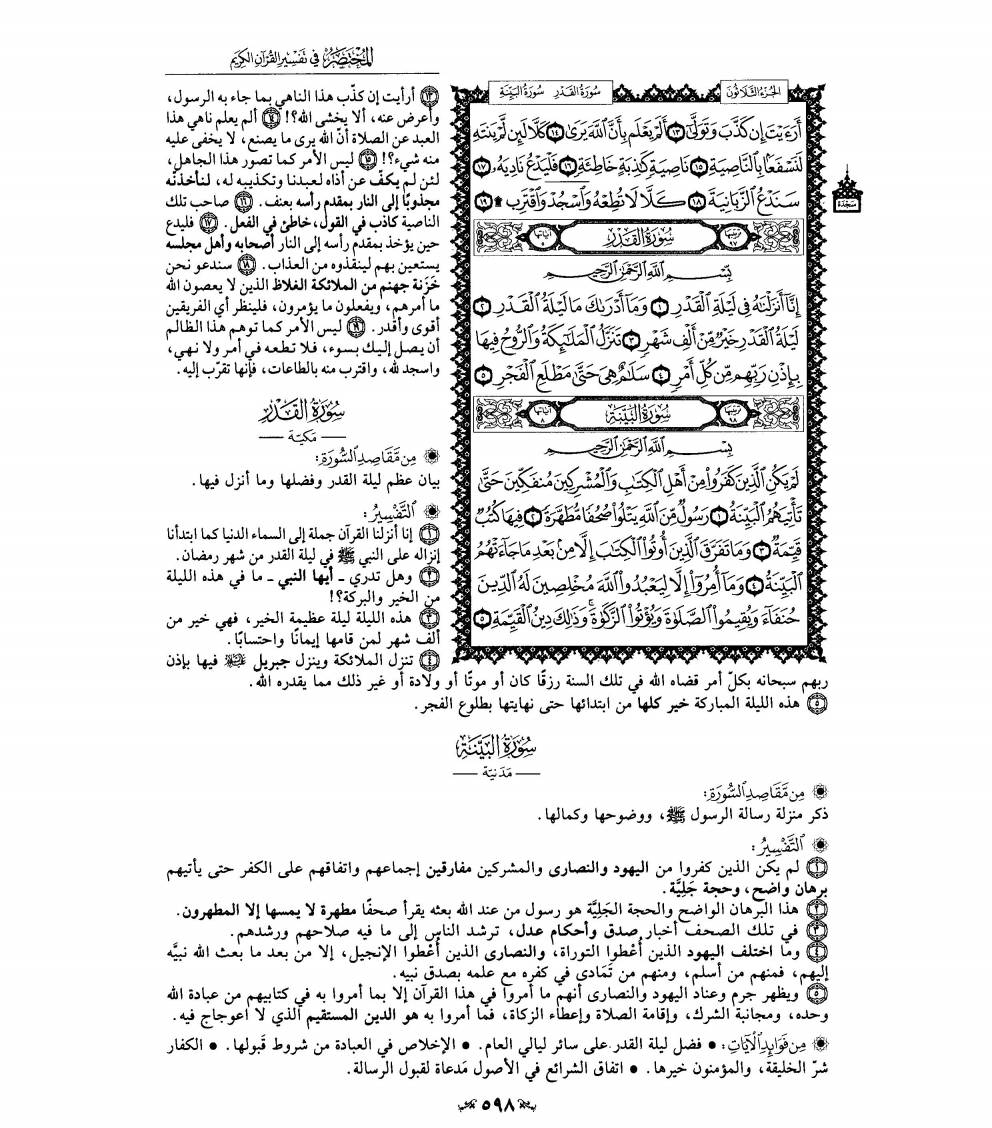 المختصر في تفسير القرآن الكريم
الجزء الثلاثون
سورة القدر سورة البينة
أَرَءَيْتَ إِن كَذَّبَ وَتَوَلَّىٰٓ ١٣ أَلَمْ يَعْلَم بِأَنَّ ٱللَّهَ يَرَىٰ ١٤ كَلَّا لَئِن لَّمْ يَنتَهِ
لَنَسْفَعًۢا بِٱلنَّاصِيَةِ ١٥ نَاصِيَةٍ كَٰذِبَةٍ خَاطِئَةٍ ١٦ فَلْيَدْعُ نَادِيَهُۥ ١٧
سَنَدْعُ ٱلزَّبَانِيَةَ ١٨ كَلَّا لَا تُطِعْهُ وَٱسْجُدْ وَٱقْتَرِب ۩ ١٩
سجدة
ترتيبها ٩٧ سورة القدر آياتها ٥
بِسْمِ ٱللَّهِ ٱلرَّحْمَٰنِ ٱلرَّحِيمِ
إِنَّآ أَنزَلْنَٰهُ فِى لَيْلَةِ ٱلْقَدْرِ ١ وَمَآ أَدْرَىٰكَ مَا لَيْلَةُ ٱلْقَدْرِ ٢
لَيْلَةُ ٱلْقَدْرِ خَيْرٌ مِّنْ أَلْفِ شَهْرٍ ٣ تَنَزَّلُ ٱلْمَلَٰٓئِكَةُ وَٱلرُّوحُ فِيهَا
بِإِذْنِ رَبِّهِم مِّن كُلِّ أَمْرٍ ٤ سَلَٰمٌ هِىَ حَتَّىٰ مَطْلَعِ ٱلْفَجْرِ ٥
ترتيبها ٩٨ سورة البينة آياتها ٨
بِسْمِ ٱللَّهِ ٱلرَّحْمَٰنِ ٱلرَّحِيمِ
لَمْ يَكُنِ ٱلَّذِينَ كَفَرُوا۟ مِنْ أَهْلِ ٱلْكِتَٰبِ وَٱلْمُشْرِكِينَ مُنفَكِّينَ حَتَّىٰ
تَأْتِيَهُمُ ٱلْبَيِّنَةُ ١ رَسُولٌ مِّنَ ٱللَّهِ يَتْلُوا۟ صُحُفًا مُّطَهَّرَةً ٢ فِيهَا كُتُبٌ
قَيِّمَةٌ ٣ وَمَا تَفَرَّقَ ٱلَّذِينَ أُوتُوا۟ ٱلْكِتَٰبَ إِلَّا مِنۢ بَعْدِ مَا جَآءَتْهُمُ
ٱلْبَيِّنَةُ ٤ وَمَآ أُمِرُوٓا۟ إِلَّا لِيَعْبُدُوا۟ ٱللَّهَ مُخْلِصِينَ لَهُ ٱلدِّينَ
حُنَفَآءَ وَيُقِيمُوا۟ ٱلصَّلَوٰةَ وَيُؤْتُوا۟ ٱلزَّكَوٰةَ ۚ وَذَٰلِكَ دِينُ ٱلْقَيِّمَةِ ٥
١٣ أرأيت إن كذّب هذا الناهي بما جاء به الرسول،
وأعرض عنه، ألا يخشى الله؟! ١٤ ألم يعلم ناهي هذا
العبد عن الصلاة أنّ الله يرى ما يصنع، لا يخفى عليه
منه شيء؟! ١٥ ليس الأمر كما تصور هذا الجاهل،
لئن لم يكفّ عن أذاه لعبدنا وتكذيبه له، لنأخذنّه
مجذوبًا إلى النار بمقدم رأسه بعنف. ١٦ صاحب تلك
الناصية كاذب في القول، خاطئ في الفعل. ١٧ فليدع
حين يؤخذ بمقدم رأسه إلى النار أصحابه وأهل مجلسه
يستعين بهم لينقذوه من العذاب. ١٨ سندعو نحن
خَزَنة جهنم من الملائكة الغلاظ الذين لا يعصون الله
ما أمرهم، ويفعلون ما يؤمرون، فلينظر أي الفريقين
أقوى وأقدر. ١٩ ليس الأمر كما توهم هذا الظالم
أن يصل إليك بسوء، فلا تطعه في أمر ولا نهي،
واسجد لله، واقترب منه بالطاعات، فإنها تقرّب إليه.
سورة القدر
— مَكيّة —
من مقاصد السورة:
بيان عظم ليلة القدر وفضلها وما أنزل فيها.
التفسير:
١ إنا أنزلنا القرآن جملة إلى السماء الدنيا كما ابتدأنا
إنزاله على النبي ﷺ في ليلة القدر من شهر رمضان.
٢ وهل تدري ـ أيها النبي ـ ما في هذه الليلة
من الخير والبركة؟!
٣ هذه الليلة ليلة عظيمة الخير، فهي خير من
ألف شهر لمن قامها إيمانًا واحتسابًا.
٤ تنزل الملائكة وينزل جبريل عليه السلام فيها بإذن
ربهم سبحانه بكلّ أمر قضاه الله في تلك السنة رزقًا كان أو موتًا أو ولادة أو غير ذلك مما يقدره الله.
٥ هذه الليلة المباركة خير كلها من ابتدائها حتى نهايتها بطلوع الفجر.
سورة البينة
— مَدَنيّة —
من مقاصد السورة:
ذكر منزلة رسالة الرسول ﷺ، ووضوحها وكمالها.
التفسير:
١ لم يكن الذين كفروا من اليهود والنصارى والمشركين مفارقين إجماعهم واتفاقهم على الكفر حتى يأتيهم
برهان واضح، وحجة جَلِيَّة.
٢ هذا البرهان الواضح والحجة الجَلِيَّة هو رسول من عند الله بعثه يقرأ صحفًا مطهرة لا يمسها إلا المطهرون.
٣ في تلك الصحف أخبار صدق وأحكام عدل، ترشد الناس إلى ما فيه صلاحهم ورشدهم.
٤ وما اختلف اليهود الذين أُعطوا التوراة، والنصارى الذين أُعطوا الإنجيل، إلا من بعد ما بعث الله نبيَّه
إليهم، فمنهم من أسلم، ومنهم من تَمَادى في كفره مع علمه بصدق نبيه.
٥ ويظهر جرم وعناد اليهود والنصارى أنهم ما أمروا في هذا القرآن إلا بما أمروا به في كتابيهم من عبادة الله
وحده، ومجانبة الشرك، وإقامة الصلاة وإعطاء الزكاة، فما أمروا به هو الدين المستقيم الذي لا اعوجاج فيه.
من فوائد الآيات: • فضل ليلة القدر على سائر ليالي العام. • الإخلاص في العبادة من شروط قَبولها. • الكفار
شرّ الخليقة، والمؤمنون خيرها. • اتفاق الشرائع في الأصول مَدعاة لقبول الرسالة.
٥٩٨